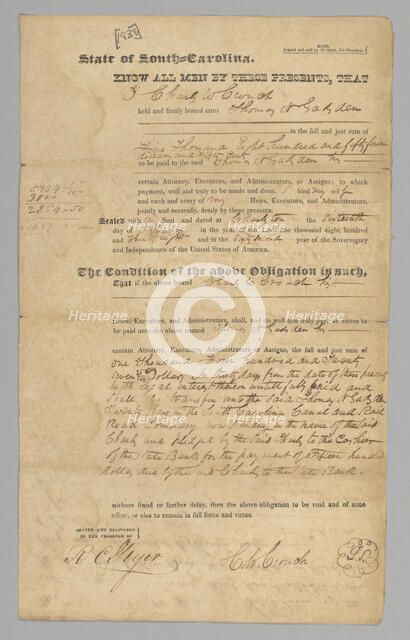 [1838]
BOND.
State of South-Carolina.
KNOW ALL MEN BY THESE PRESENTS, THAT
I Charles W Crouch
held and firmly bound unto Thomas N Gadsden
in the full and just sum of
Thousand Eight hundred and fifty four
dollars and fifty Cents
to be paid to the said Thomas N Gadsden his
certain Attorney, Executors, and Administrators, or Assigns: to which
payment, well and truly to be made and done, I bind my self
and each and every of my Heirs, Executors, and Administrators,
jointly and severally, firmly by these presents.
Sealed with my Seal and dated at Charleston the Sixteenth
day of in the year of our Lord one thousand eight hundred
and thirty eight and in the Sixty second year of the Sovereignty
and Independence of the United States of America.
The Condition of the above Obligation is such,
That if the above bound Charles W Crouch his
Heirs, Executors, and Administrators, shall, and do well and truly pay, or cause to
be paid unto the above named Thomas N Gadsden his
certain Attorney, Executors, Administrators or Assigns, the full and just sum of
one thousand four hundred and twenty
Dollars in days from the date of these presents
with legal interest thereon until fully paid and
shall transfer unto the said Thomas N Gadsden
in the South Carolina Canal and Rail
Road Company now standing in the name of the said
Charles and pledged by the said Charles to the Cashier
of the State Bank for the payment of fifteen hundred
dollars due by the said Charles to the State Bank
without fraud or further delay, then the above obligation to be void and of none
effect, or else to remain in full force and virtue.
SEALED AND DELIVERED
IN THE PRESENCE OF
C. W. Crouch
L.S.
C
Heritage Images